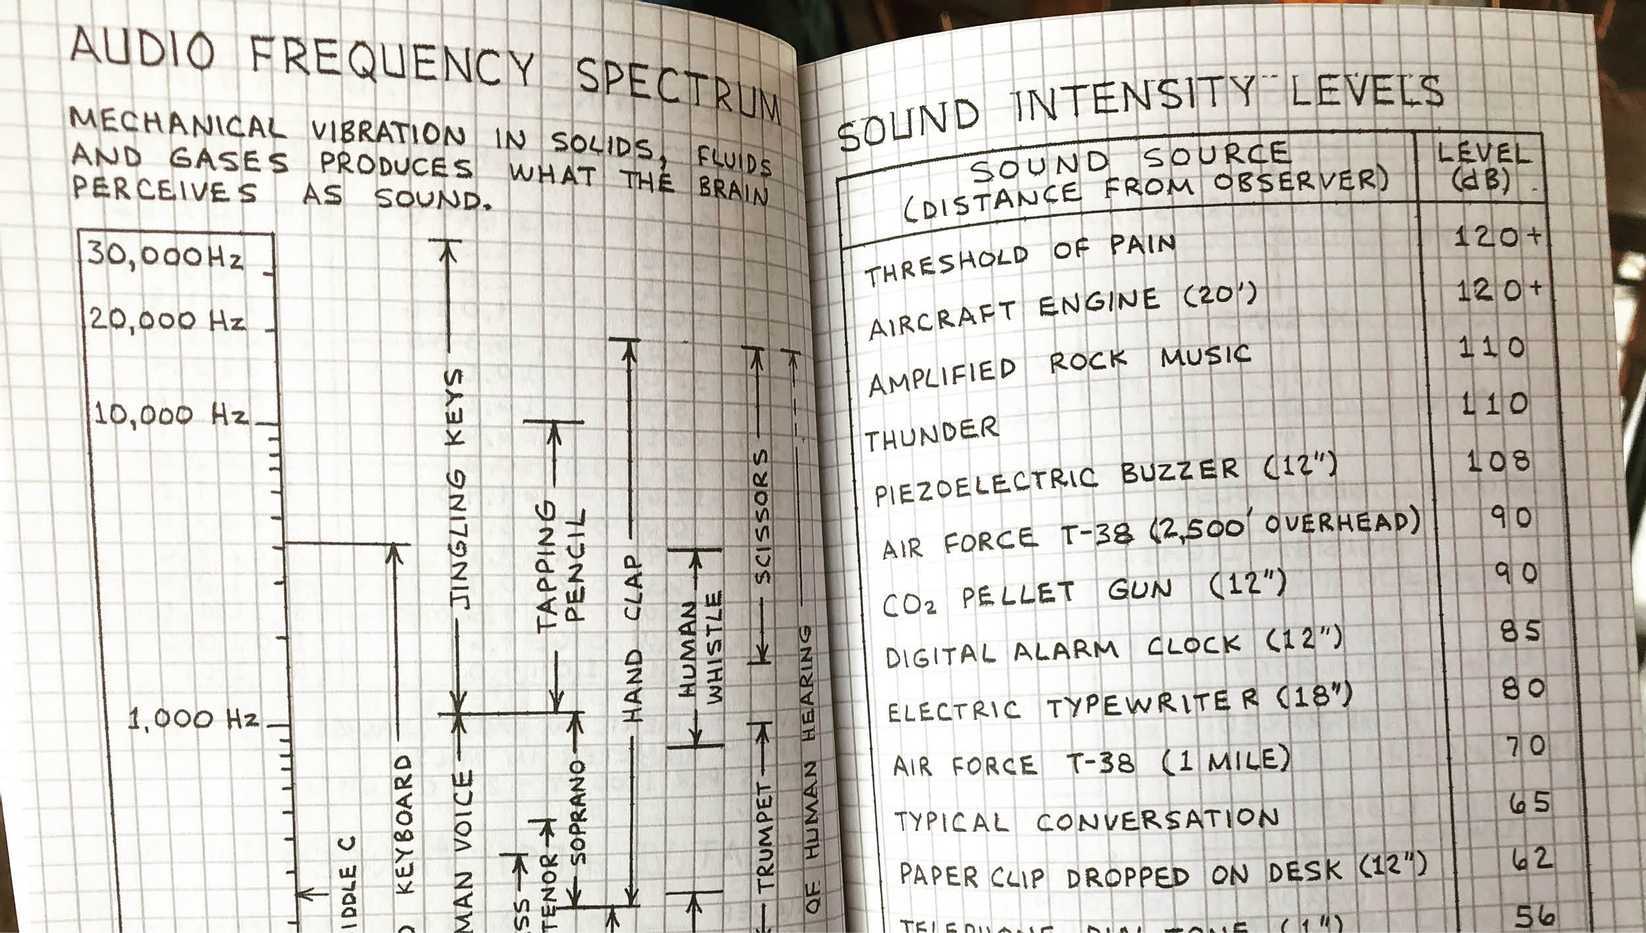 AUDIO FREQUENCY SPECTRUM
MECHANICAL VIBRATION IN SOLIDS, FLUIDS
AND GASES PRODUCES WHAT THE BRAIN
PERCEIVES AS SOUND.
30,000 Hz
20,000 Hz
10,000 Hz
1,000 Hz
IDDLE C
KEYBOARD
JINGLING KEYS
MAN VOICE
TAPPING
PENCIL
SS
TENOR
SOPRANO
HAND CLAP
HUMAN
WHISTLE
SCISSORS
TRUMPET
OF HUMAN HEARING
SOUND INTENSITY LEVELS
SOUND SOURCE
(DISTANCE FROM OBSERVER)
LEVEL
(dB)
THRESHOLD OF PAIN 120+
AIRCRAFT ENGINE (20') 120+
AMPLIFIED ROCK MUSIC 110
THUNDER 110
PIEZOELECTRIC BUZZER (12") 108
AIR FORCE T-38 (2,500' OVERHEAD) 90
CO2 PELLET GUN (12") 90
DIGITAL ALARM CLOCK (12") 85
ELECTRIC TYPEWRITER (18") 80
AIR FORCE T-38 (1 MILE) 70
TYPICAL CONVERSATION 65
PAPER CLIP DROPPED ON DESK (12") 62
TELEPHONE DIAL TONE (1") 56